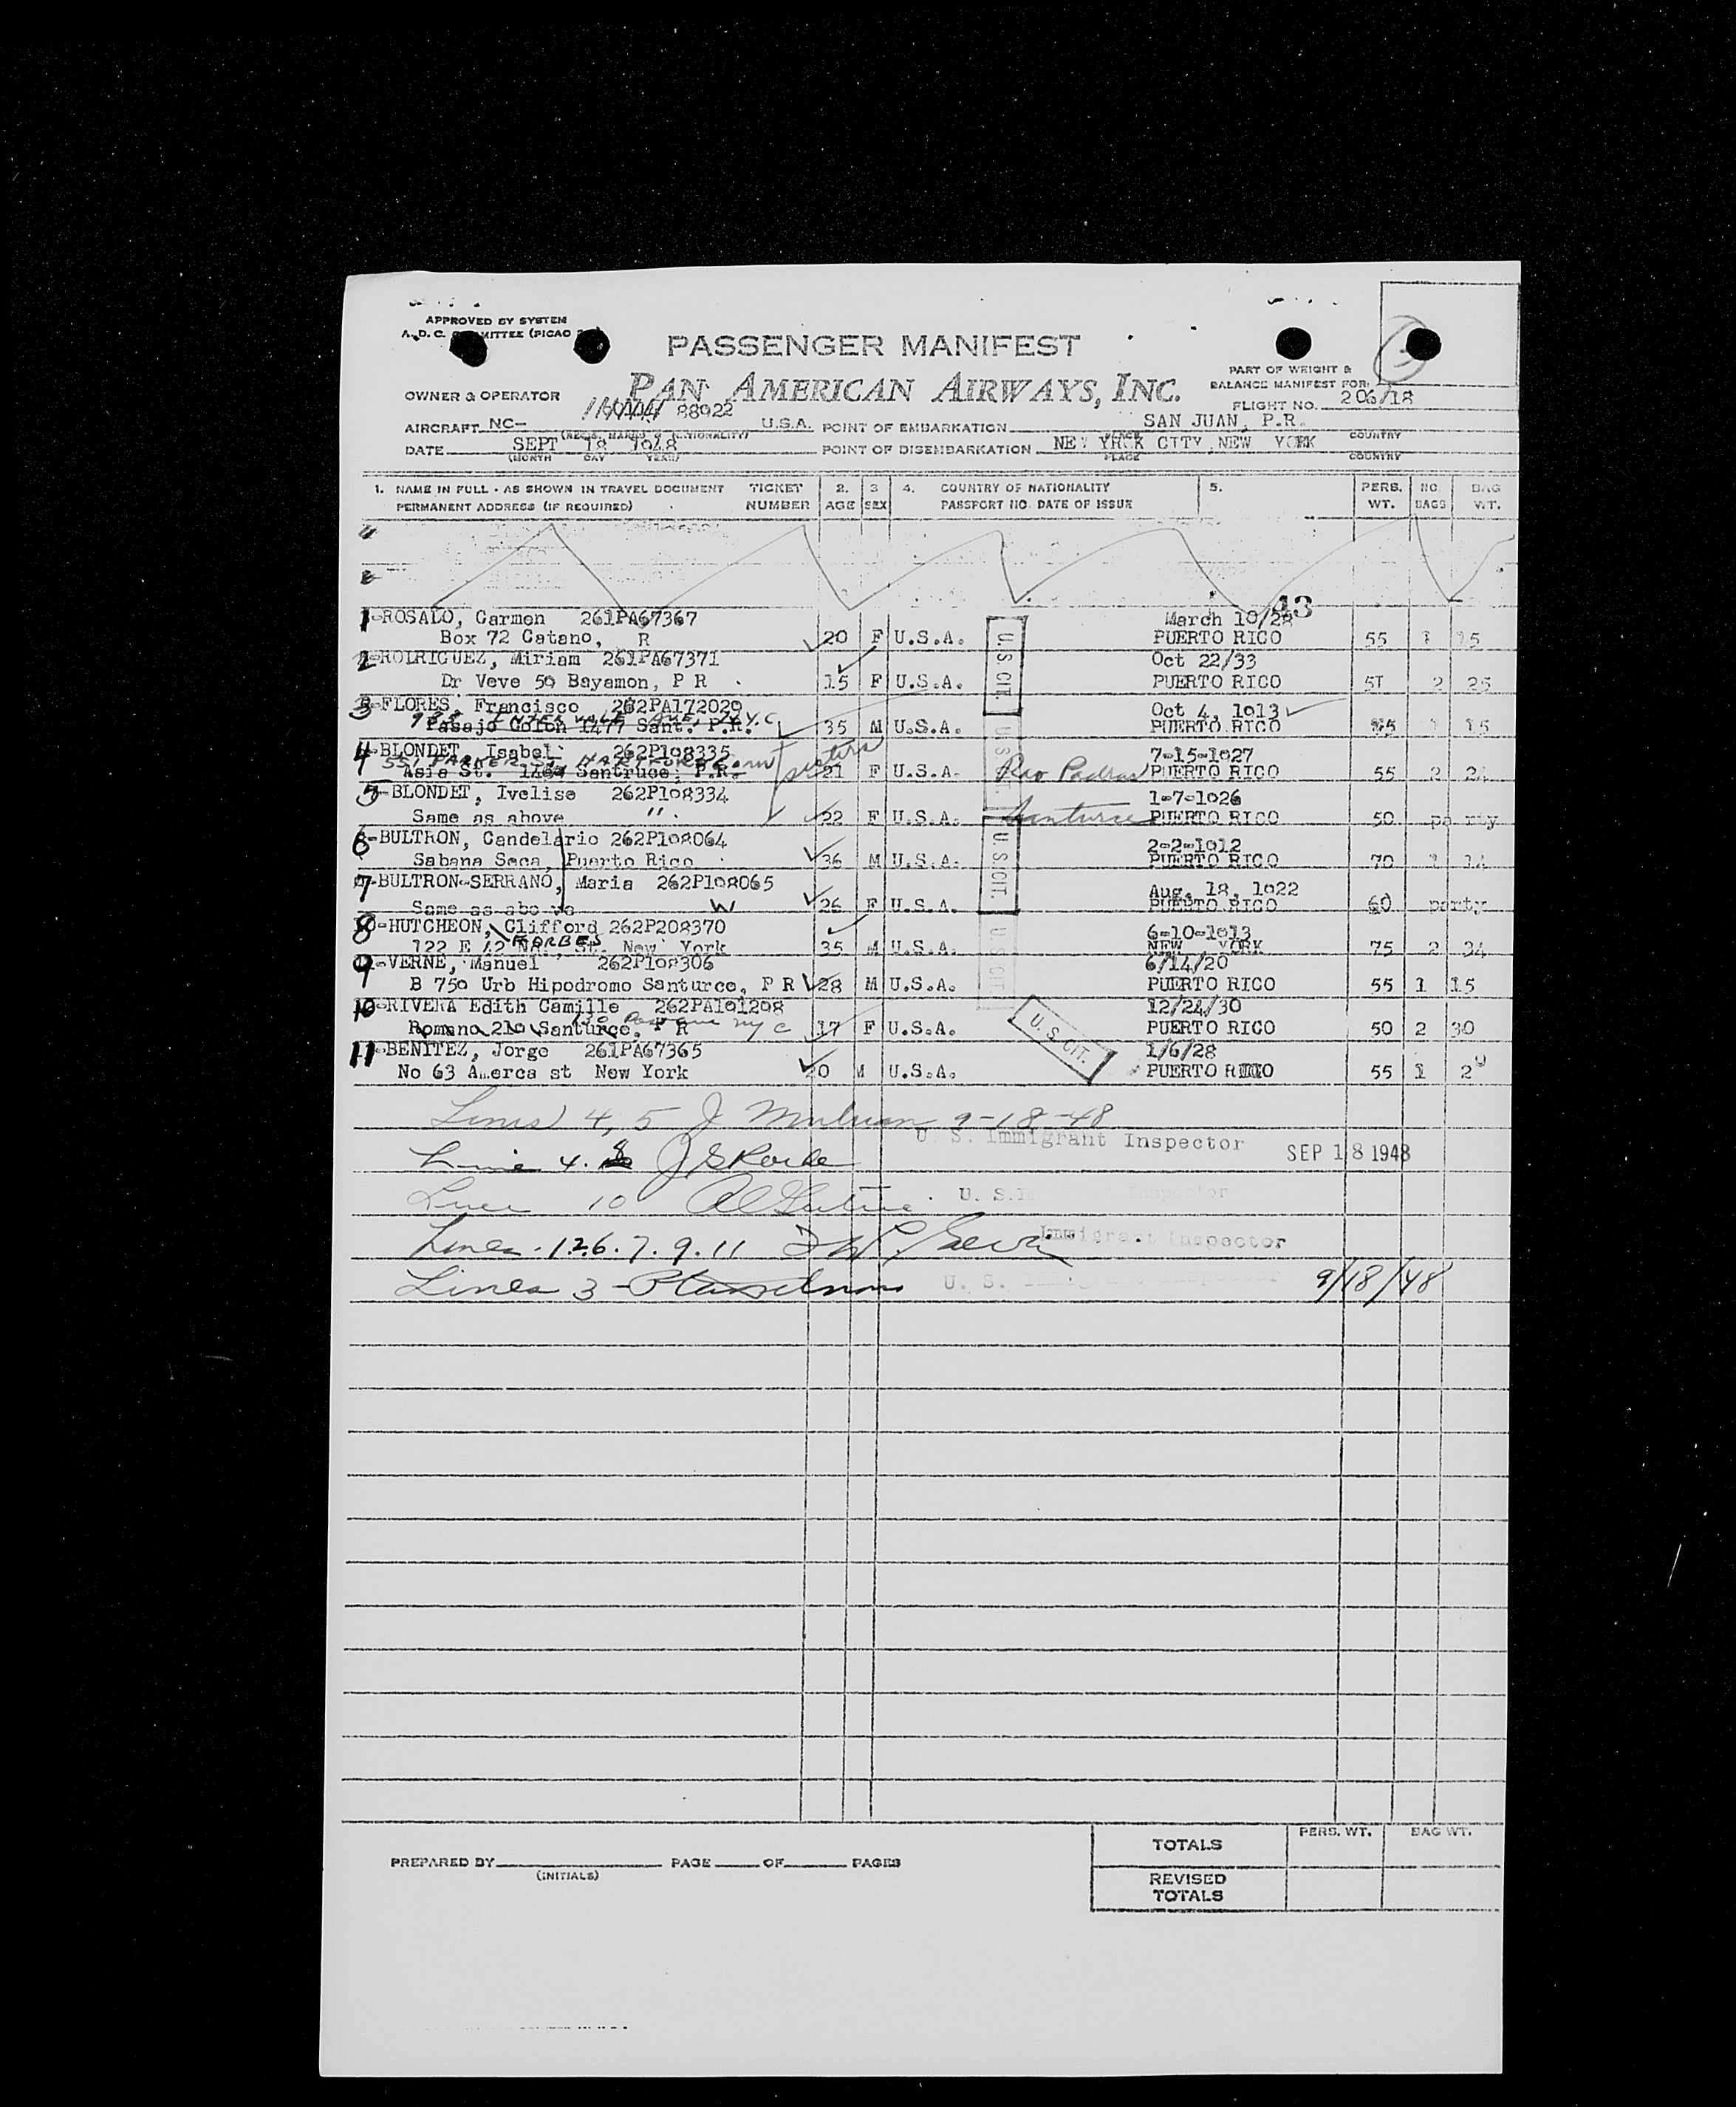 APPROVED BY SYSTEM
A. D. C. COMMITTEE (PICAO
PASSENGER MANIFEST
PART OF WEIGHT &
BALANCE MANIFEST FOR:
OWNER & OPERATOR PAN AMERICAN AIRWAYS, INC.
FLIGHT NO. 206/18
AIRCRAFT NC- 88922 U.S.A. POINT OF EMBARKATION SAN JUAN, P.R.
(REGIS. MARKS & NATIONALITY) PLACE COUNTRY
DATE SEPT 18 1948 POINT OF DISEMBARKATION NEW YROK CITY ,NEW YORK
(MONTH DAY YEAR) PLACE COUNTRY
1. NAME IN FULL - AS SHOWN IN TRAVEL DOCUMENT TICKET 2. 3 4. COUNTRY OF NATIONALITY 5. PERS. NO. BAG
PERMANENT ADDRESS (IF REQUIRED) NUMBER AGE SEX PASSPORT NO. DATE OF ISSUE WT. BAGS WT.
43
1-ROSADO, Carmen 261PA67367 March 10/28
Box 72 Catano, R 20 F U.S.A. PUERTO RICO 55 1 15
2-RODRIGUEZ, Miriam 261PA67371 Oct 22/33
Dr Veve 59 Bayamon, P R 15 F U.S.A. PUERTO RICO 5T 2 25
U.S. CIT.
3-FLORES, Francisco 262PA172029 Oct 4, 1913
INTERVALE AVE, N.Y.C
Pasajo Colon 1477 Sant. P.R. 35 M U.S.A. PUERTO RICO 55 1 15
4-BLONDET, Isabel 262P198335 7-15-1927
551 PARKER ST HARTFORD Conn sisters
Asia St. Santruce, P.R. 21 F U.S.A. Rio Padras PUERTO RICO 55 2 24
5-BLONDET, Ivelise 262P198334 1-7-1926
Same as above ". 22 F U.S.A. Santurce PUERTO RICO 50 party
6-BULTRON, Candelario 262P198064 2-2-1912
Sabana Seca, Puerto Rico 36 M U.S.A. PUERTO RICO 70 1 34
U.S. CIT.
7-BULTRON-SERRANO, Maria 262P198065 Aug. 18, 1922
Same as above W 26 F U.S.A. PUERTO RICO 60 party
8-HUTCHEON, Clifford 262P208370 6-10-1913
FORBES
722 E St. New York 35 M U.S.A. NEW YORK 75 2 34
U.S. CIT.
9-VERNE, Manuel 262P198306 6/14/20
B 750 Urb Hipodromo Santurce, P R 28 M U.S.A. PUERTO RICO 55 1 15
10-RIVERA Edith Camille 262PA191298 12/24/30
Romano 210 Santurce, P R NYC 17 F U.S.A. PUERTO RICO 50 2 30
U.S. CIT.
11-BENITEZ, Jorge 261PA67365 1/6/28
No 63 Amerca st New York 20 M U.S.A. PUERTO RICO 55 1 29
Lines 4, 5 J 9-18-48
U. S. Immigrant Inspector SEP 18 1948
Line 4. 8
Line 10 U. S.
Lines. 1.2.6.7.9.11 Immigrant Inspector
Lines 3 - U. S. 9/18/48
TOTALS PERS. WT. BAG WT.
PREPARED BY PAGE OF PAGES
(INITIALS)
REVISED
TOTALS